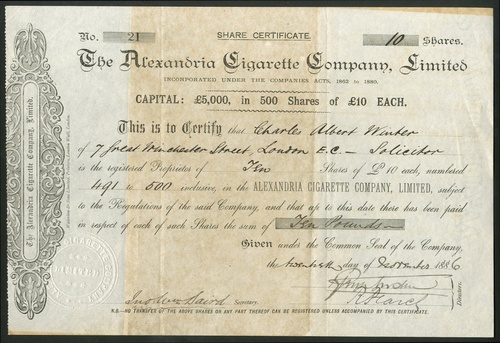 SHARE CERTIFICATE.
No. 21
10 Shares.
The Alexandria Cigarette Company, Limited
INCORPORATED UNDER THE COMPANIES ACTS, 1862 to 1880.
CAPITAL: £5,000, in 500 Shares of £10 EACH.
This is to Certify that Charles Albert Winter
of 7 Great Winchester Street, London E.C. — Solicitor
is the registered Proprietor of Ten Shares of £10 each, numbered
491 to 500 inclusive, in the ALEXANDRIA CIGARETTE COMPANY, LIMITED, subject
to the Regulations of the said Company, and that up to this date there has been paid
in respect of each of such Shares the sum of Ten Pounds
Given under the Common Seal of the Company,
the twentieth day of 1886
Baird Secretary.
Directors.
N.B.—NO TRANSFER OF THE ABOVE SHARES OR ANY PART THEREOF CAN BE REGISTERED UNLESS ACCOMPANIED BY THIS CERTIFICATE.
The Alexandria Cigarette Company, Limited.